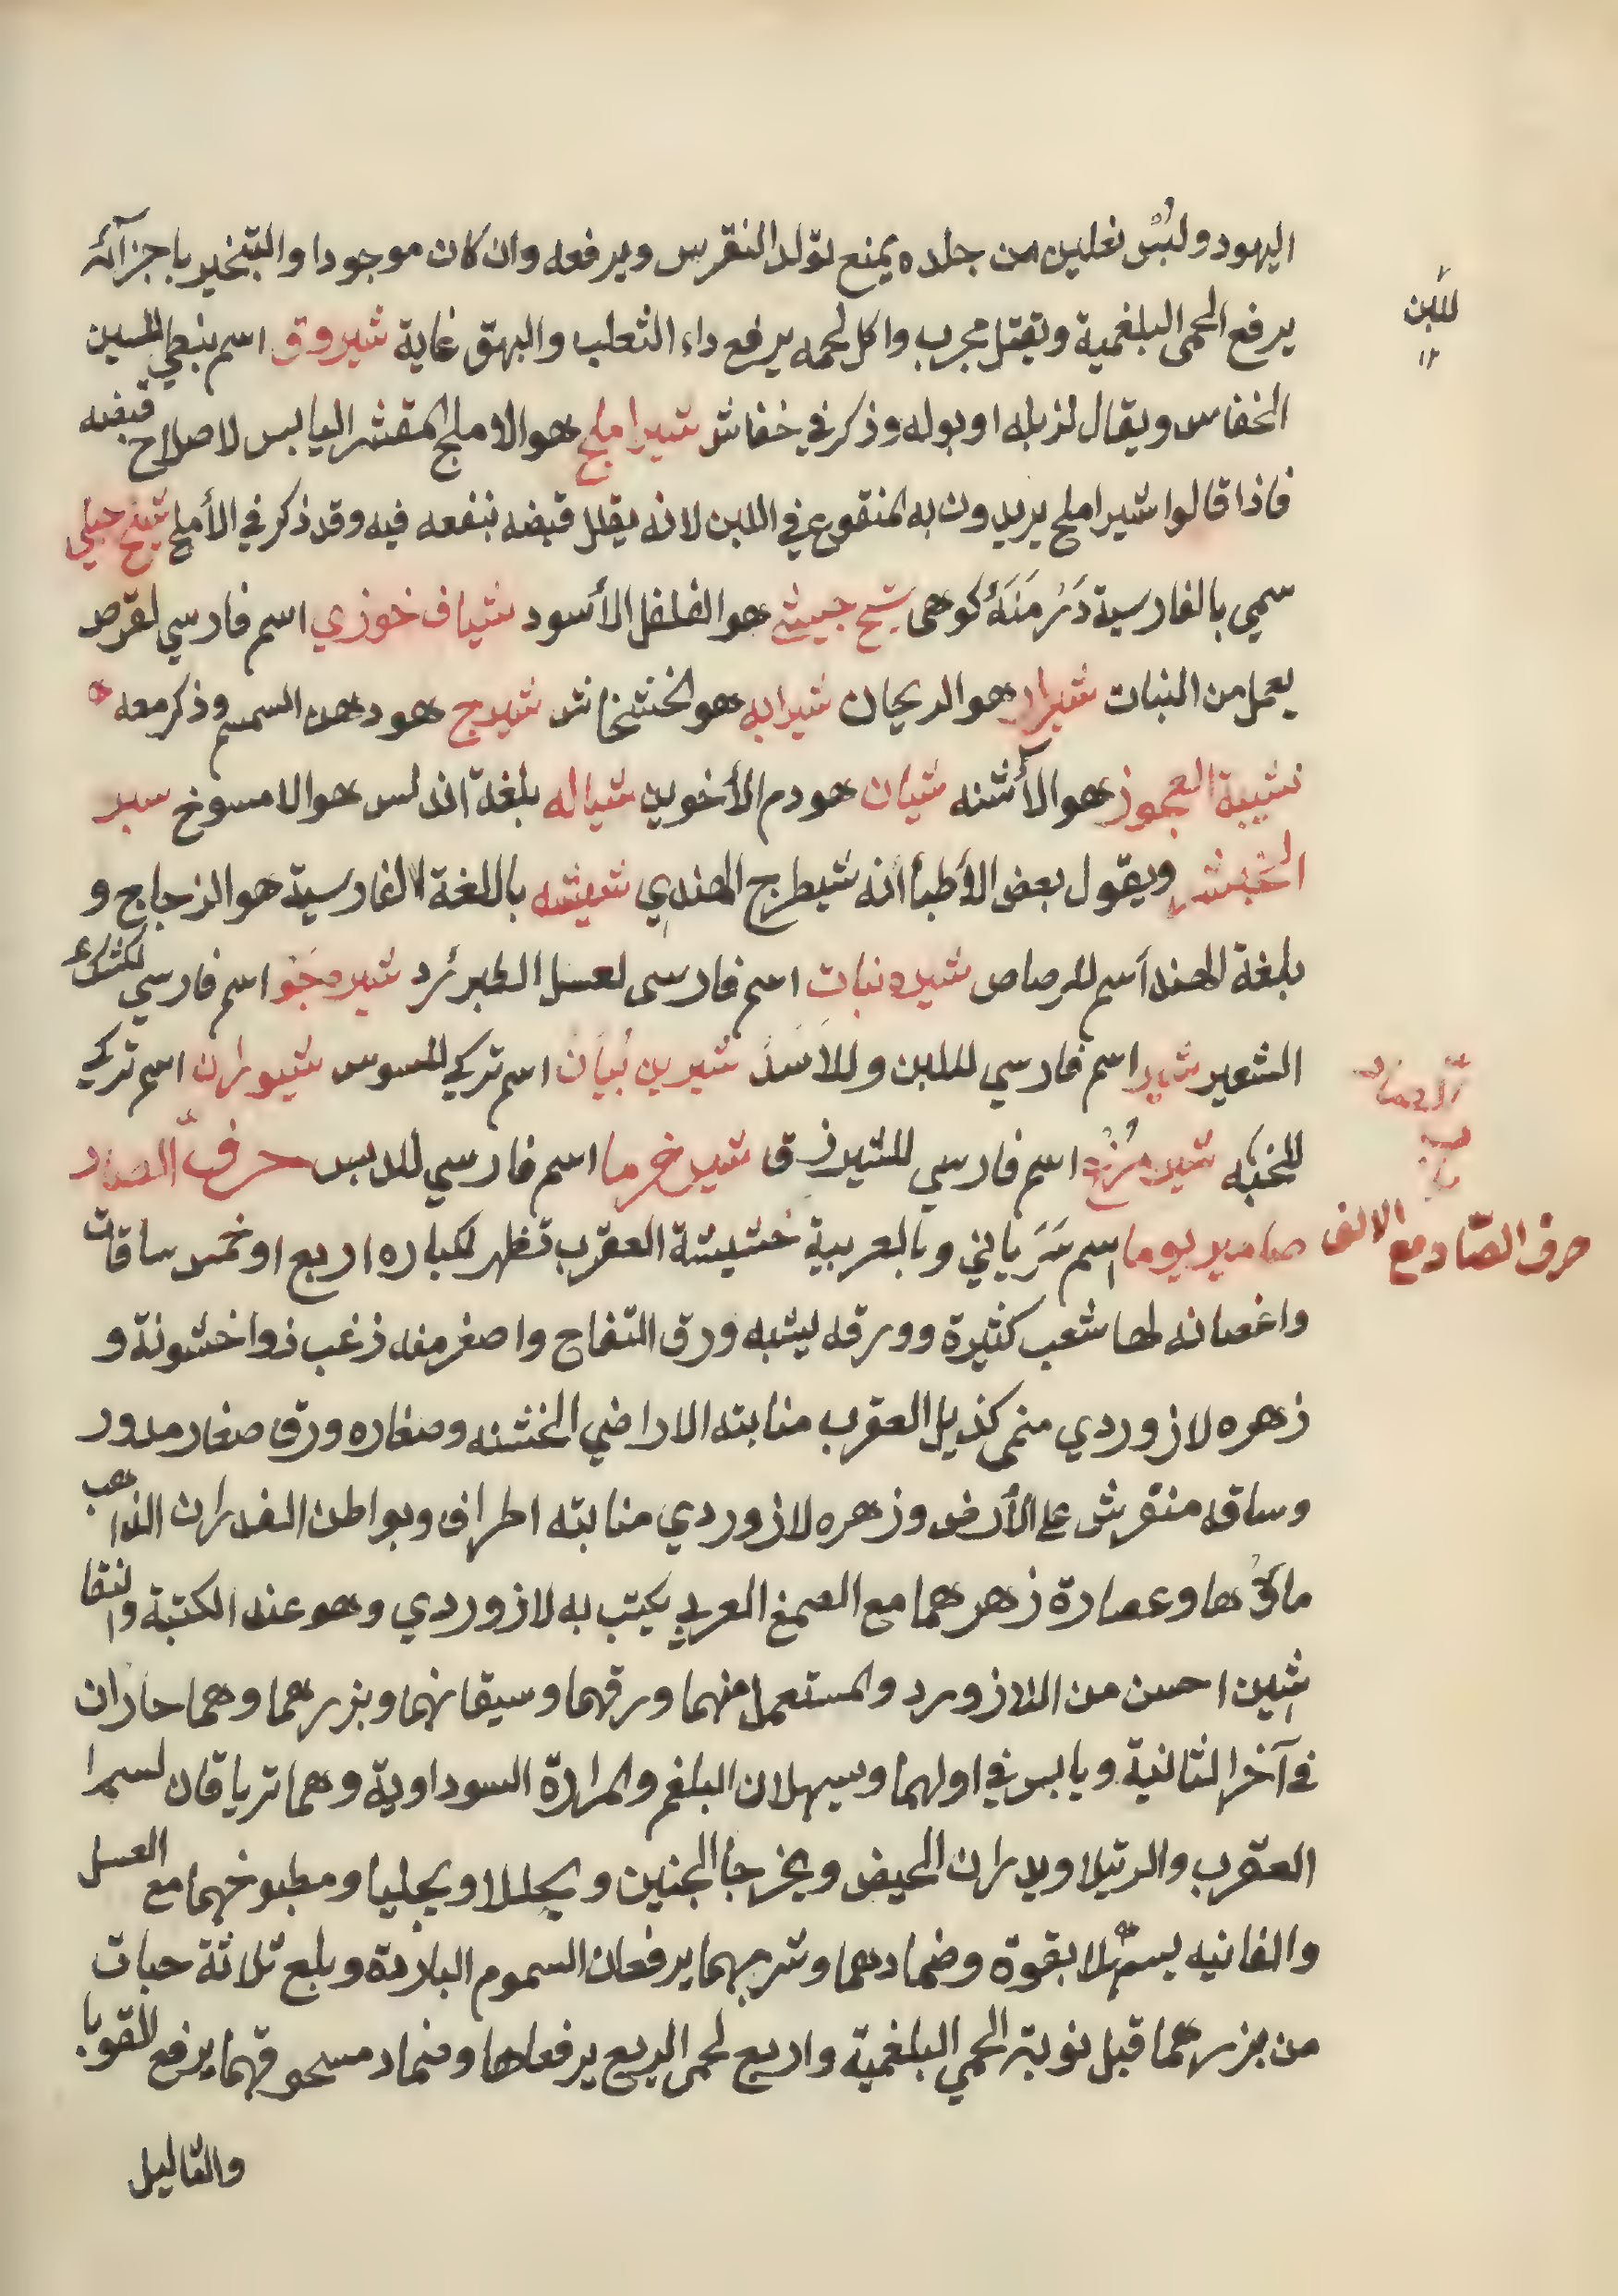 اليهود ولُبْس نعلين من جلده يمنع تولد النقرس ويرفعه وان كان موجودا والتبخير باجزآئه
يرفع الحمى البلغمية وتقتل مجرب واكل لحمه يرفع داء الثعلب والبهق غاية شيروق اسم بنطي للسين
للبن
الخفاس ويقال لزبله او بوله وذكر في خفاش شيراملج هو الاملج المقشر اليابس لاصلاح قبضه
فاذا قالوا شيراملج يريدون به المنقوع في اللبن لانه يقلل قبضه بنفعه فيه وقد ذكر في الأملج شيخ جبلي
سمي بالفارسية دَرْمَنَهٔ كوهى شيخ حبيشي هو الفلفل الأسود شياف خوزي اسم فارسي لقرص
يعمل من النبات شيرار هو الريحان شيرابه هو الخشخاش شيرج هو دهن السمسم وذكر معه
شيبة العجوز هو الآشنه شيان هو دم الأخوين شياله بلغة اندلس هو الامسوخ سير
الخبشير ويقول بعض الأطبأ انه شيطرج الهندي شيشه باللغة الفارسية هو الزجاج و
بلغة الهند اسم للرصاص شيره نبات اسم فارسى لعسل الطبرزد شيرهجَو اسم فارسي لكشك
الشعير شير اسم فارسي لللبن وللأسَد شيرين بُيَان اسم تركي للسوس شيوران اسم تركي
للخبه شير مُرْغ اسم فارسي للشيرزق شير خرما اسم فارسي للدبس حرف الصاد
حرف الصّاد مع الالف
صامريوما اسم سَرَياني وبالعربية خشيشة العقرب تظهر لكباره اربع او خمس ساقات
واغصانه لها شعب كثيرة وورقه يشبه ورق التفاح واصغر منه زغب ذوا خشونة و
زهره لازوردي منحى كذيل العقرب منابته الاراضي الخشنه وصغاره ورق صغار مدور
وساقه منقرش على الأرض وزهره لازوردي منابته اطراف وبواطن الغدران الذاهب
ماؤها وعصارة زهرهما مع الصمغ العربي يكتب به لازوردي وهو عند الكتبة والنقا
شين احسن من اللازورد والمستعمل منهما ورقهما وسيقانهما وبزرهما وهما حاران
في آخر الثانية ويابس في اولهما وسيهلان البلغم والمرارة السوداوية وهما ترياقان لسمرا
العقرب والرتيلا ويدران الحيض ويخرجا الجنين ويحللا ويجليا ومطبوخهما مع العسل
والفانيه يسهّلا بقوة وضمادهما وشربهما يرفعان السموم الباردة وبلع ثلاثة حبات
من بزرهما قبل نوبتة الحمي البلغمية واربع لحمى الربع يرفعاها وضماد مسحوقهما يرفع القوبا
والثاليل